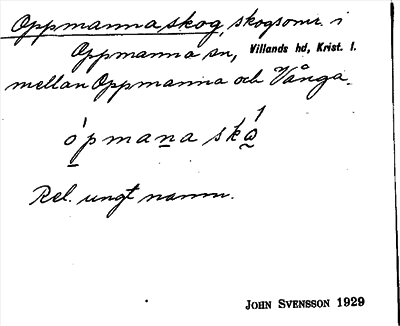 Oppmanna skog, skogsomr. i
Oppmanna sn, Villands hd, Krist. l.
mellan Oppmanna och Vånga.
ópmana skà 1
Rel. ungt namn.
JOHN SVENSSON 1929